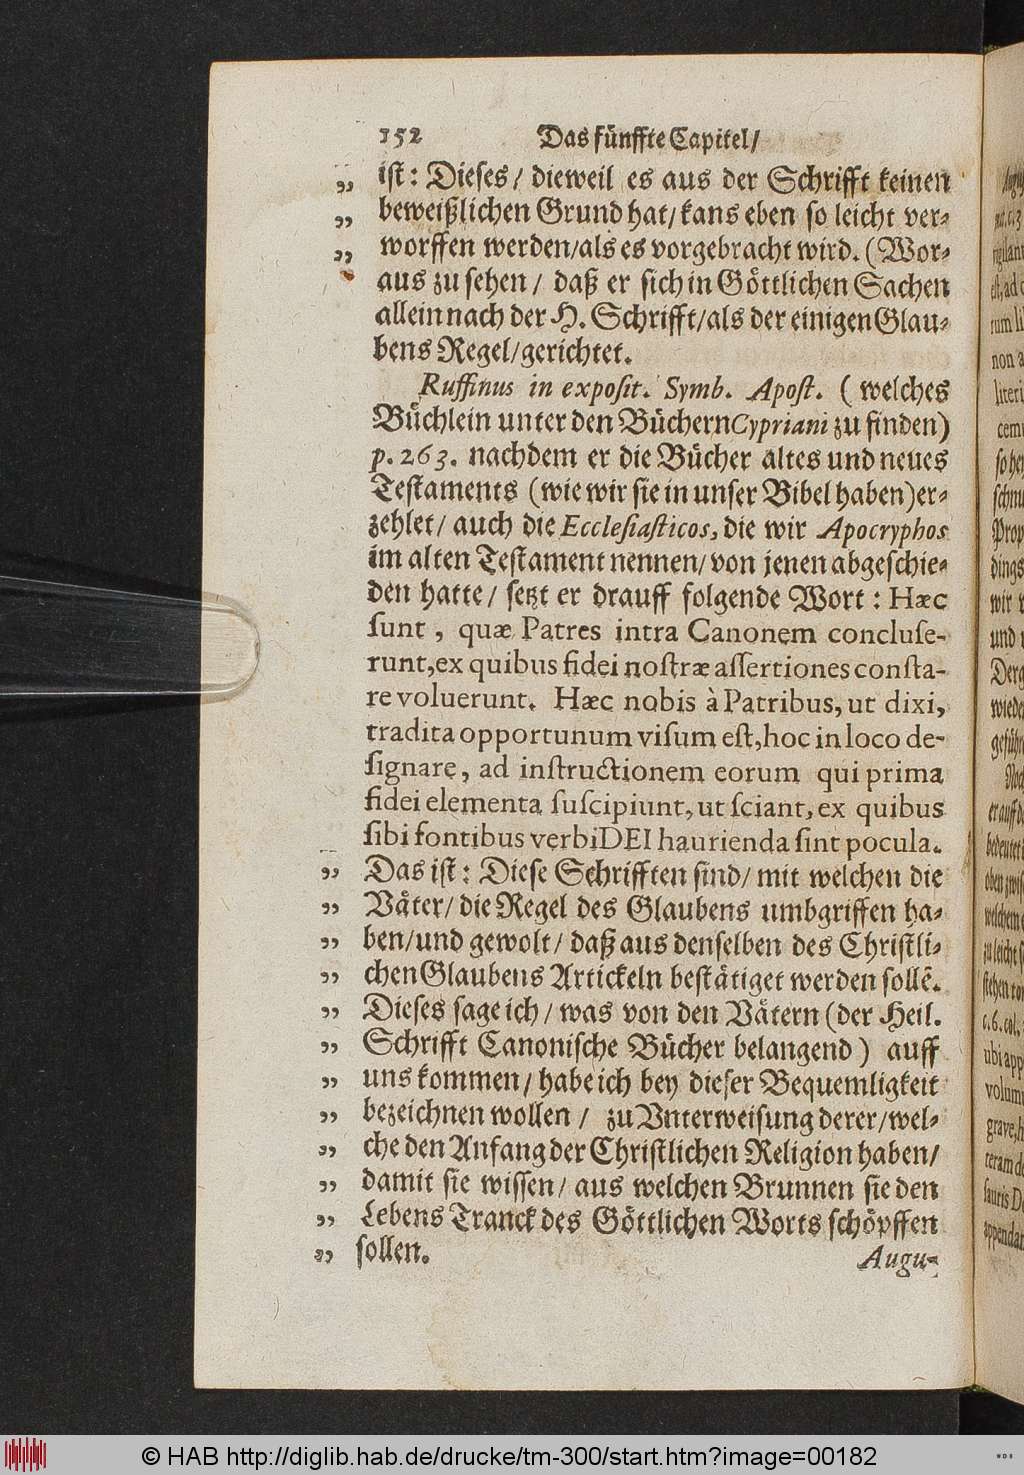 152 Das fünffte Capitel/
„ ist: Dieses/ dieweil es aus der Schrifft keinen
„ beweißlichen Grund hat/ kans eben so leicht ver-
„ worffen werden/ als es vorgebracht wird. (Wor-
aus zu sehen/ daß er sich in Göttlichen Sachen
allein nach der H. Schrifft/ als der einigen Glau-
bens Regel/ gerichtet.
Ruffinus in exposit. Symb. Apost. (welches
Büchlein unter den Büchern Cypriani zu finden)
p. 263. nachdem er die Bücher altes und neues
Testaments (wie wir sie in unser Bibel haben) er-
zehlet/ auch die Ecclesiasticos, die wir Apocryphos
im alten Testament nennen/ von jenen abgeschie-
den hatte/ setzt er drauff folgende Wort: Hæc
sunt, quæ Patres intra Canonem concluse-
runt, ex quibus fidei nostræ assertiones consta-
re voluerunt. Hæc nobis à Patribus, ut dixi,
tradita opportunum visum est, hoc in loco de-
signare, ad instructionem eorum qui prima
fidei elementa suscipiunt, ut sciant, ex quibus
sibi fontibus verbi DEI haurienda sint pocula.
„ Das ist: Diese Schrifften sind/ mit welchen die
„ Väter/ die Regel des Glaubens umbgriffen ha-
„ ben/ und gewolt/ daß aus denselben des Christli-
„ chen Glaubens Artickeln bestätiget werden sollē.
„ Dieses sage ich/ was von den Vätern (der Heil.
„ Schrifft Canonische Bücher belangend) auff
„ uns kommen/ habe ich bey dieser Bequemligkeit
„ bezeichnen wollen/ zu Vnterweisung derer/ wel-
„ che den Anfang der Christlichen Religion haben/
„ damit sie wissen/ aus welchen Brunnen sie den
„ Lebens Tranck des Göttlichen Worts schöpffen
„ sollen.
Augu-
© HAB http://diglib.hab.de/drucke/tm-300/start.htm?image=00182